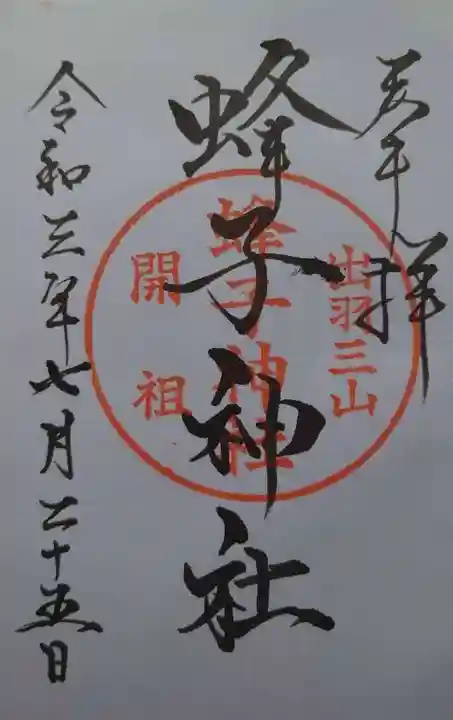 奉拝
蜂子神社
出羽三山
蜂子神社
開祖
令和三年七月二十五日